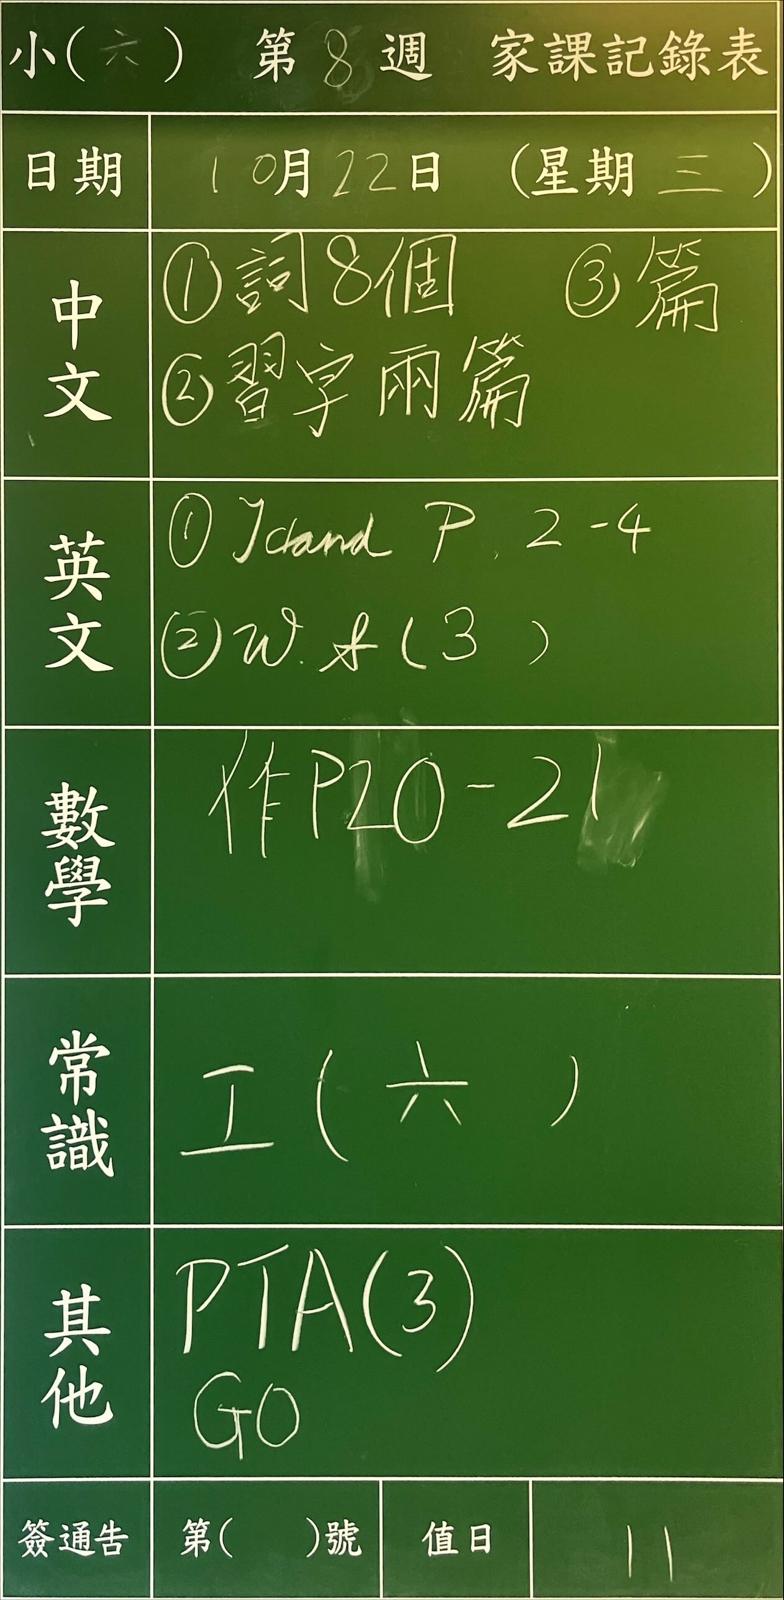 小(六) 第8週 家課記錄表
日期 10月22日 (星期三)
中文
①詞8個 ③篇
②習字兩篇
英文
① Island P. 2-4
② W.S (3 )
數學
作P20-21
常識
工(六 )
其他
PTA(3)
GO
簽通告 第( )號 值日 11